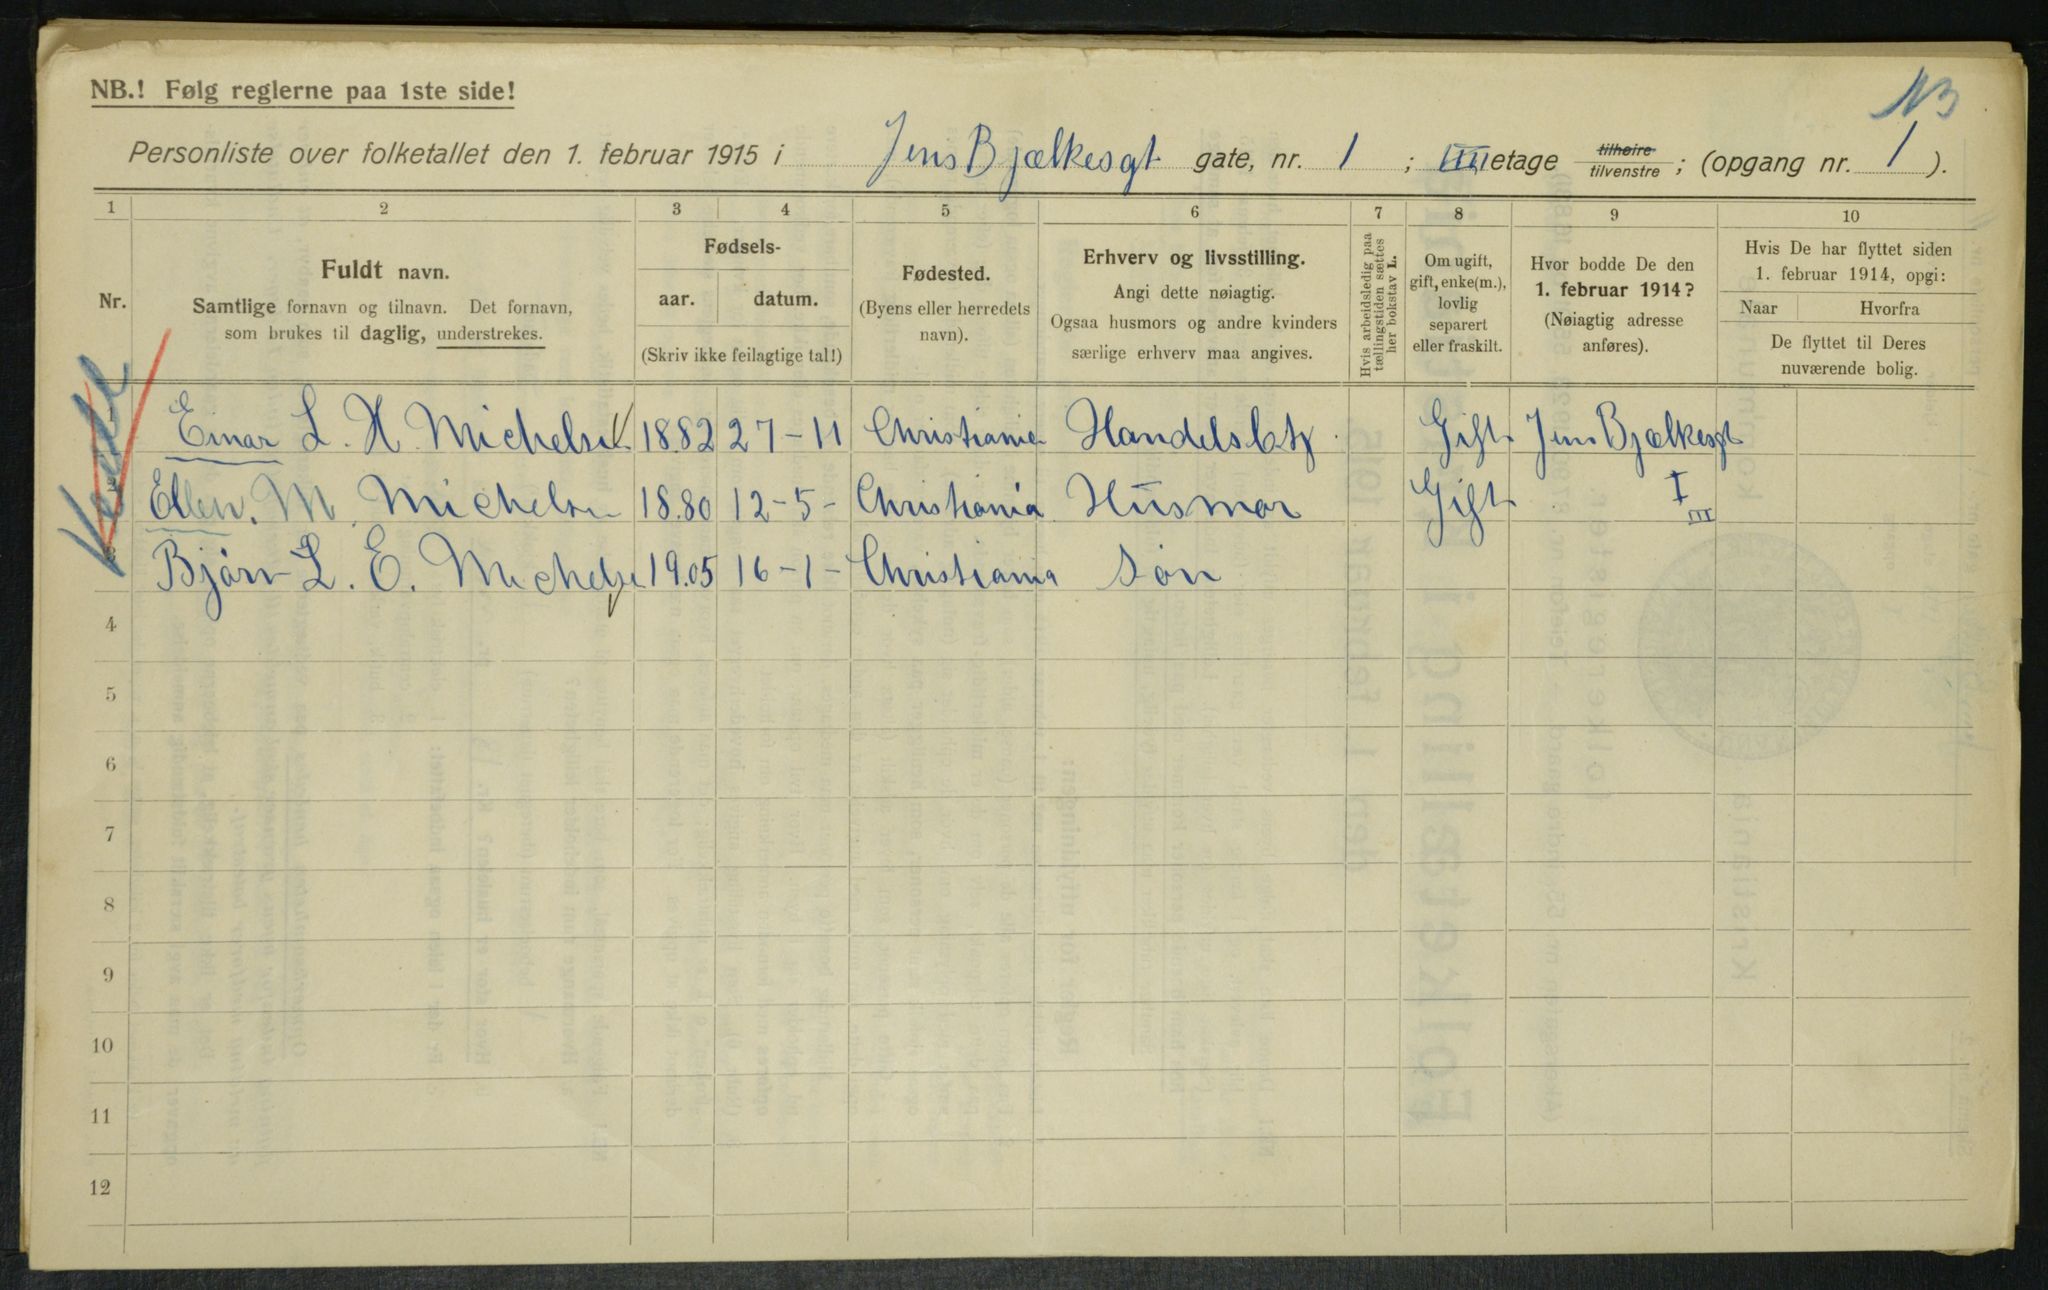 NB.! Følg reglerne paa 1ste side!
Personliste over folketallet den 1. februar 1915 i Jens Bjælkesgt gate, nr. 1 ; III etage tilhøire tilvenstre ; (opgang nr. 1 ).
1 2 3 4 5 6 7 8 9 10
Nr.
Fuldt navn.
Samtlige fornavn og tilnavn. Det fornavn,
som brukes til daglig, understrekes.
Fødsels-
aar. datum.
(Skriv ikke feilagtige tal!)
Fødested.
(Byens eller herredets
navn).
Erhverv og livsstilling.
Angi dette nøiagtig.
Ogsaa husmors og andre kvinders
særlige erhverv maa angives.
Hvis arbeidsledig paa
tællingstiden sættes
her bokstav L.
Om ugift,
gift, enke(m.),
lovlig
separert
eller fraskilt.
Hvor bodde De den
1. februar 1914?
(Nøiagtig adresse
anføres).
Hvis De har flyttet siden
1. februar 1914, opgi:
Naar Hvorfra
De flyttet til Deres
nuværende bolig.
Einar L. H. Michelsen 1882 27-11 Christiania Handelsbtj. Gift Jens Bjælkesgt
Ellen. M. Michelsen 18.80 12-5- Christiania Husmor Gift I
III
Bjørn L. E. Michelsen 19.05 16-1- Christiania Søn
4
5
6
7
8
9
10
11
12